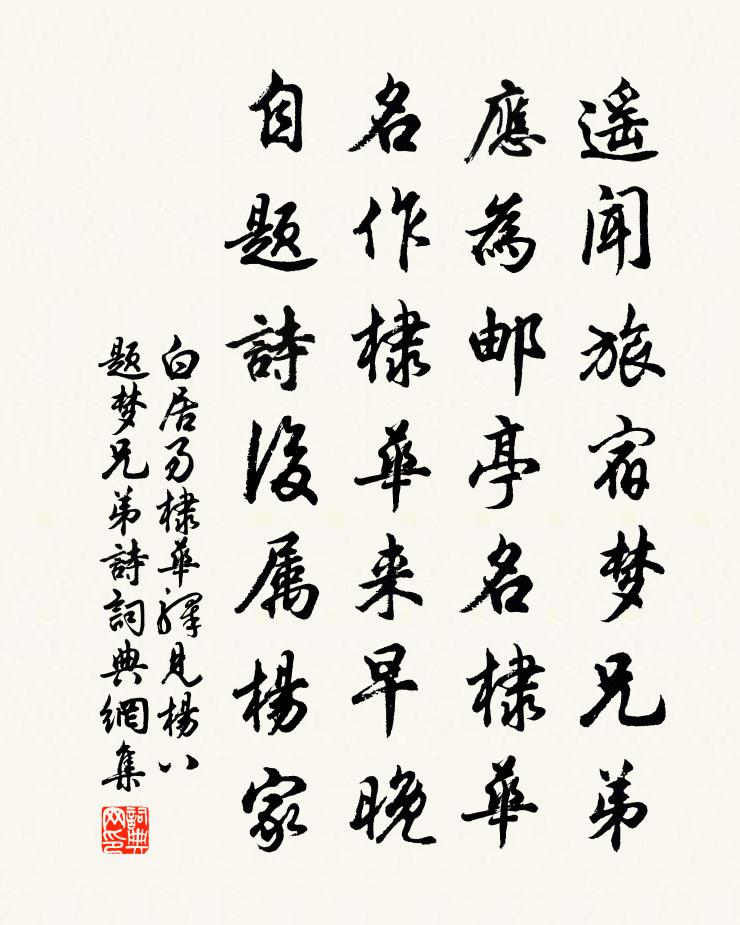 遥闻旅宿梦兄弟
應為邮亭名棣華
名作棣華来早晚
自题詩後属楊家
白居易棣華驛見楊八
题梦兄弟詩詞典網集
詞典网印